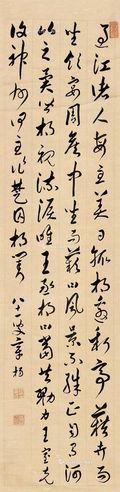 過江諸人每至美日輒相邀新亭藉卉而
坐飲宴周侯中坐而歎風景不殊正自有河
之異皆相視流淚唯王丞相曰當共勠力王室克
復神州何至作楚囚相對